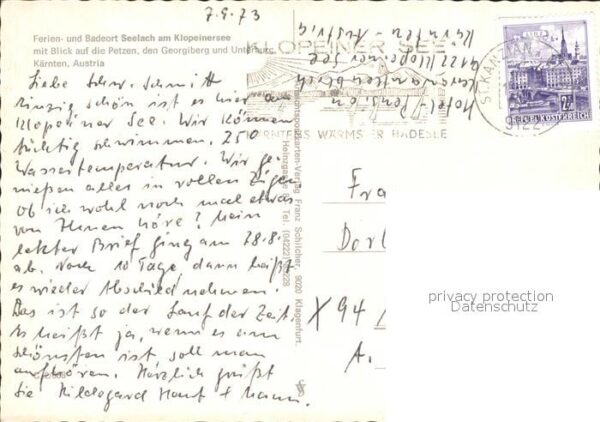 7.9.73
Ferien- und Badeort Seelach am Klopeinersee
mit Blick auf die Petzen, den Georgiberg und Unterburg
Kärnten, Austria
Liebe Schw. Schmitt
Einzig schön ist es hier am
Klopeiner See. Wir können
tüchtig schwimmen, 25°
Wassertemperatur. Wir ge-
nießen alles in vollen Zügen
ob ich wohl noch mal etwas
von Ihnen höre? Mein
letzter Brief ging am 28.8.
ab. Noch 10 Tage, dann heißt
es wieder Abschied nehmen.
Das ist so der Lauf der Zeit.
Es heißt ja, wenn es am
schönsten ist, soll man
aufhören. Herzlich grüßt
Sie Hildegard + Mann.
Ansichtspostkarten-Verlag Franz Schilcher, 9020 Klagenfurt,
Heinzgasse Tel. (04222)
Hotel-Pension
9122 Klopeiner See
Kärnten - Austria
KLOPEINER SEE
KÄRNTENS WÄRMSTER BADESEE
ST. KANZIAN
9122
LINZ
2
REPUBLIK ÖSTERREICH
Fra
Dorl
X 94
A.
privacy protection
Datenschutz